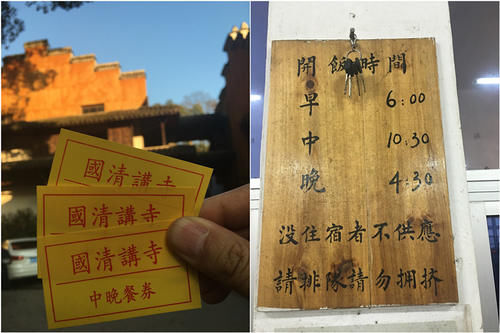 國清講寺
國清講寺
國清講寺
中晚餐券
開飯時間
早 6:00
中 10:30
晚 4:30
没住宿者不供應
請排隊請勿拥挤